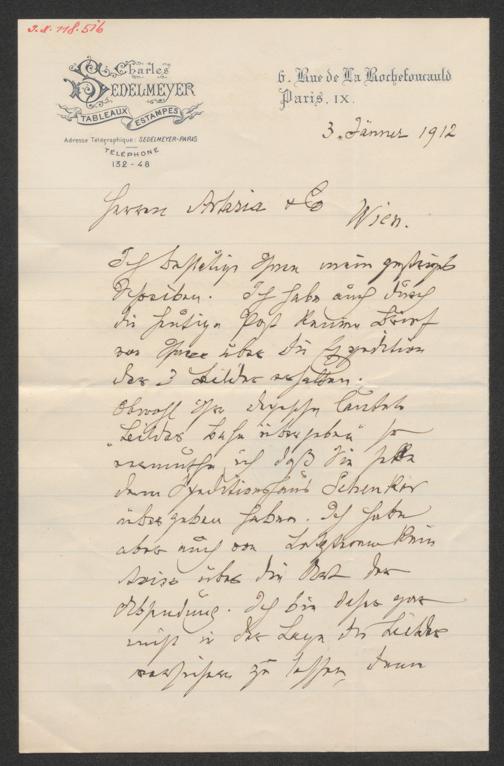 J.N. 118.516
Charles
SEDELMEYER
TABLEAUX ESTAMPES
Adresse Télégraphique: SEDELMEYER-PARIS
TÉLÉPHONE
132-48
6. Rue de La Rochefoucauld
Paris. IX.
3. Jänner 1912
Herren Artaria & Co
Wien.
Ich bestätige Ihnen mein gestriges
Schreiben. Ich habe auch durch
die heutige Post keinen Brief
von Ihnen über die Expedition
der 3 Bilder erhalten.
Obwohl Ihre Depesche lautete
"Bilder Bahn übergeben" so
vermuthe ich daß Sie selbe
dem Speditionshaus Schenker
übergeben haben. Ich habe
aber auch von Letzterem kein
Aviso über die Art der
Absendung. Ich bin daher gar
nicht in der Lage die Bilder
versichern zu lassen, denn